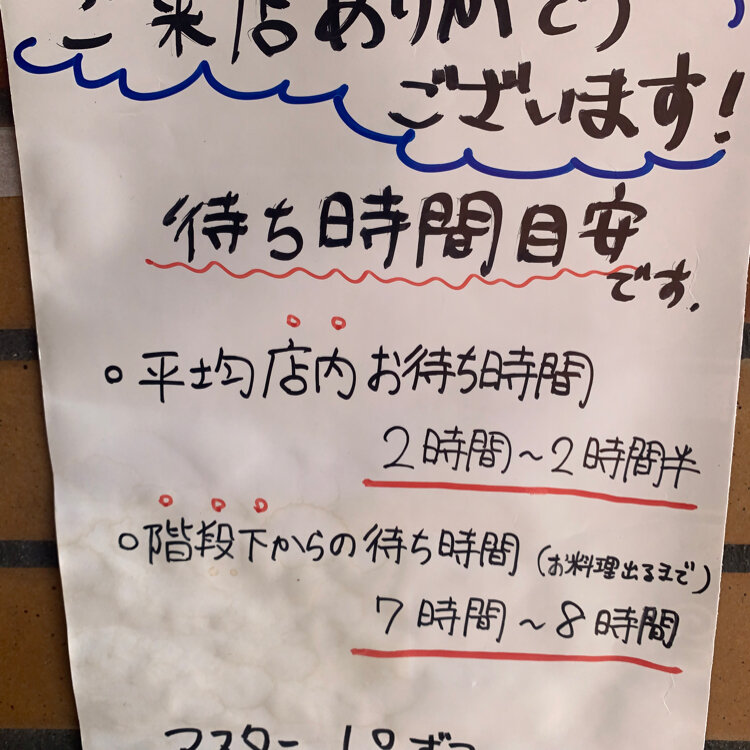 ご来店ありがとう
ございます!
待ち時間目安
です.
○平均店内お待ち時間
2時間~2時間半
○階段下からの待ち時間(お料理出るまで)
7時間~8時間